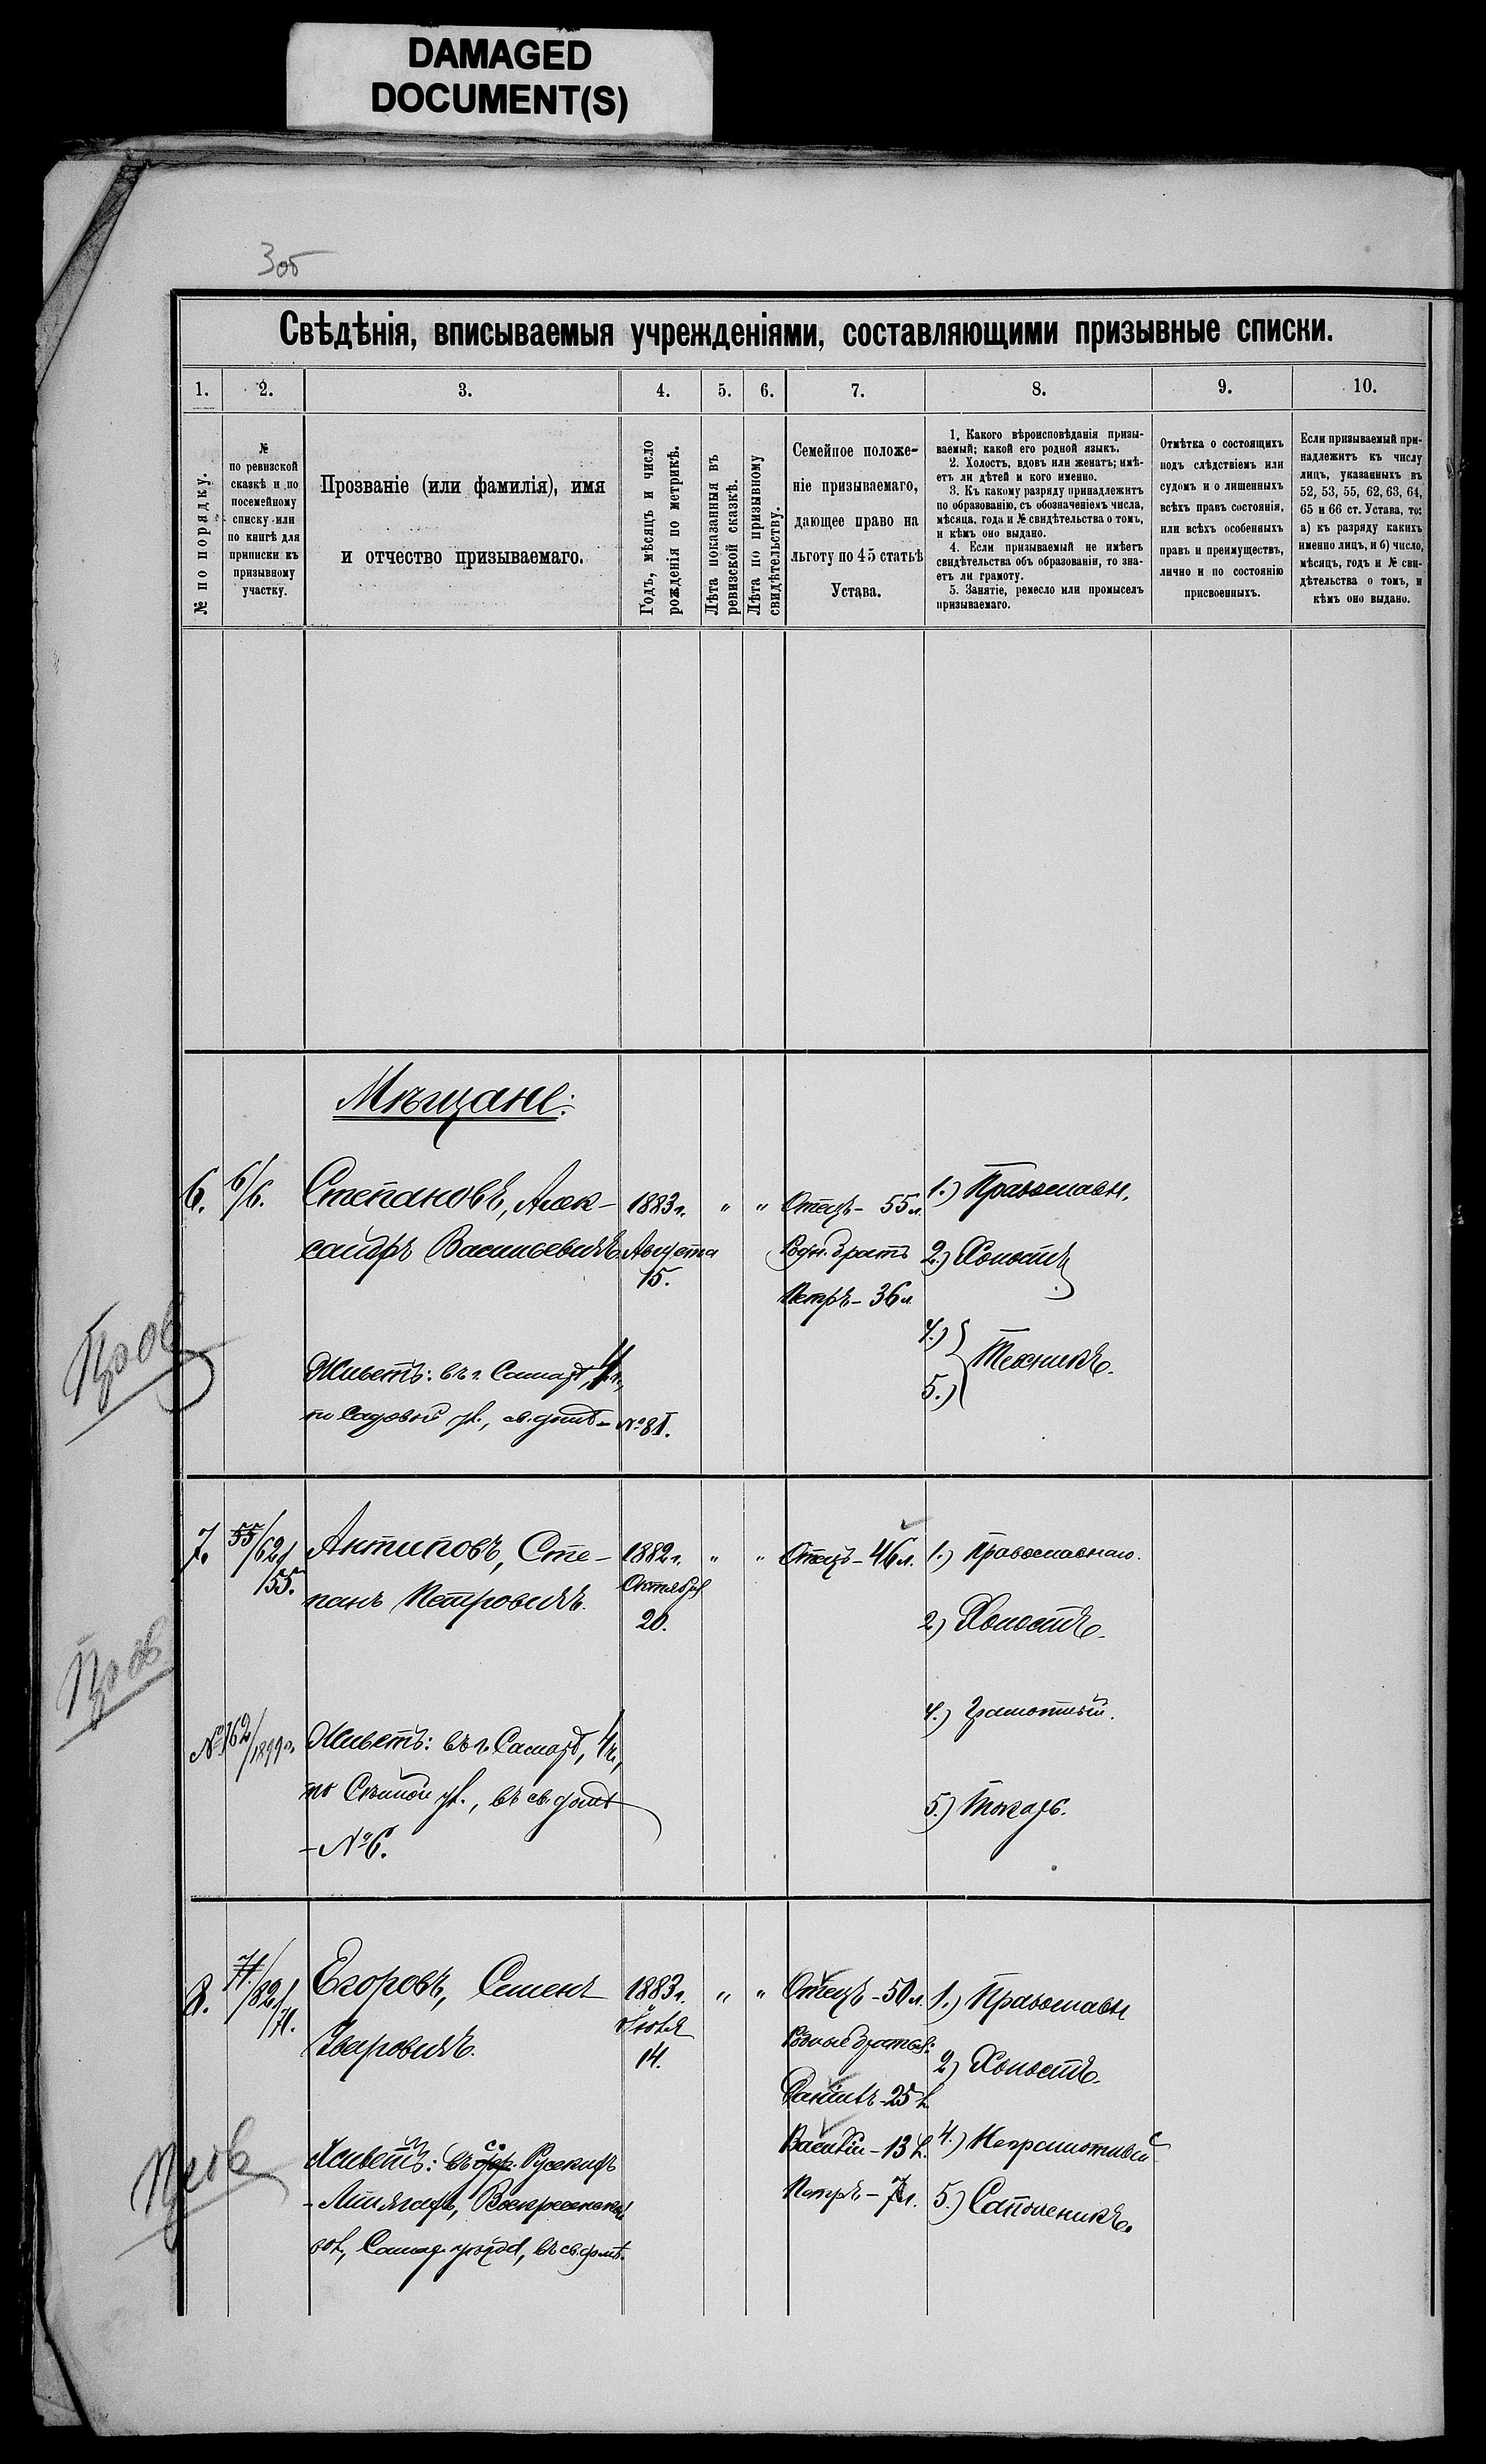 DAMAGED
DOCUMENT(S)
3об
Свѣдѣнія, вписываемыя учрежденіями, составляющими призывные списки.
1.
2.
3.
4.
5.
6.
7.
8.
9.
10.
№ по порядку.
№
по ревизской
сказкѣ и по
посемейному
списку или
по книгѣ для
приписки къ
призывному
участку.
Прозваніе (или фамилія), имя
и отчество призываемаго.
Годъ, мѣсяцъ и число
рожденія по метрикѣ.
Лѣта показанныя въ
ревизской сказкѣ.
Лѣта по призывному
свидѣтельству.
Семейное положе-
ніе призываемаго,
дающее право на
льготу по 45 статьѣ
Устава.
1. Какого вѣроисповѣданія призы-
ваемый; какой его родной языкъ.
2. Холостъ, вдовъ или женатъ; имѣ-
етъ ли дѣтей и кого именно.
3. Къ какому разряду принадлежитъ
по образованію, съ обозначеніемъ числа,
мѣсяца, года и № свидѣтельства о томъ,
и кѣмъ оно выдано.
4. Если призываемый не имѣетъ
свидѣтельства объ образованіи, то зна-
етъ ли грамоту.
5. Занятіе, ремесло или промыселъ
призываемаго.
Отмѣтка о состоящихъ
подъ слѣдствіемъ или
судомъ и о лишенныхъ
всѣхъ правъ состоянія,
или всѣхъ особенныхъ
правъ и преимуществъ,
лично и по состоянію
присвоенныхъ.
Если призываемый при-
надлежитъ къ числу
лицъ, указанныхъ въ
52, 53, 55, 62, 63, 64,
65 и 66 ст. Устава, то:
а) къ разряду какихъ
именно лицъ, и б) число,
мѣсяцъ, годъ и № сви-
дѣтельства о томъ, и
кѣмъ оно выдано.
Мѣщане:
6.
6/6.
Степановъ, Алек-
сандръ Васильевичъ.
1883 г.
Августа
15.
"
"
Отецъ - 55 л.
Родн. братъ
Петръ - 36 л.
1.) Православн.
2.) Холостъ
4.)
5.)
Техникъ.
Живетъ: въ г. Самарѣ, 4 ч.,
по Садовой ул., св. домѣ - № 81.
Пров
7.
55/62/55.
Антиповъ, Сте-
панъ Петровичъ.
1882 г.
Октября
20.
"
"
Отецъ - 46 л.
1.) Православнаго.
2) Холостъ.
4.) Грамотный.
5.) Токарь.
№ 162/1899 г.
Живетъ: въ г. Самарѣ, 4 ч.,
по Сѣнной ул., въ св. домѣ
- № 6.
Пров
8.
71./82/71.
Егоровъ, Семенъ
Уваровичъ.
1883 г.
Іюля
14.
"
"
Отецъ - 50 л.
Родные братья:
Даніилъ - 25 л.
Василій - 13 л.
Петръ - 7 л.
1.) Православн
2) Холостъ.
4.) Неграмотный
5.) Сапожникъ.
Живетъ: въ с. Русскихъ
Воскресенской
вол., Самар. уѣзда, въ св. домѣ.
Пров